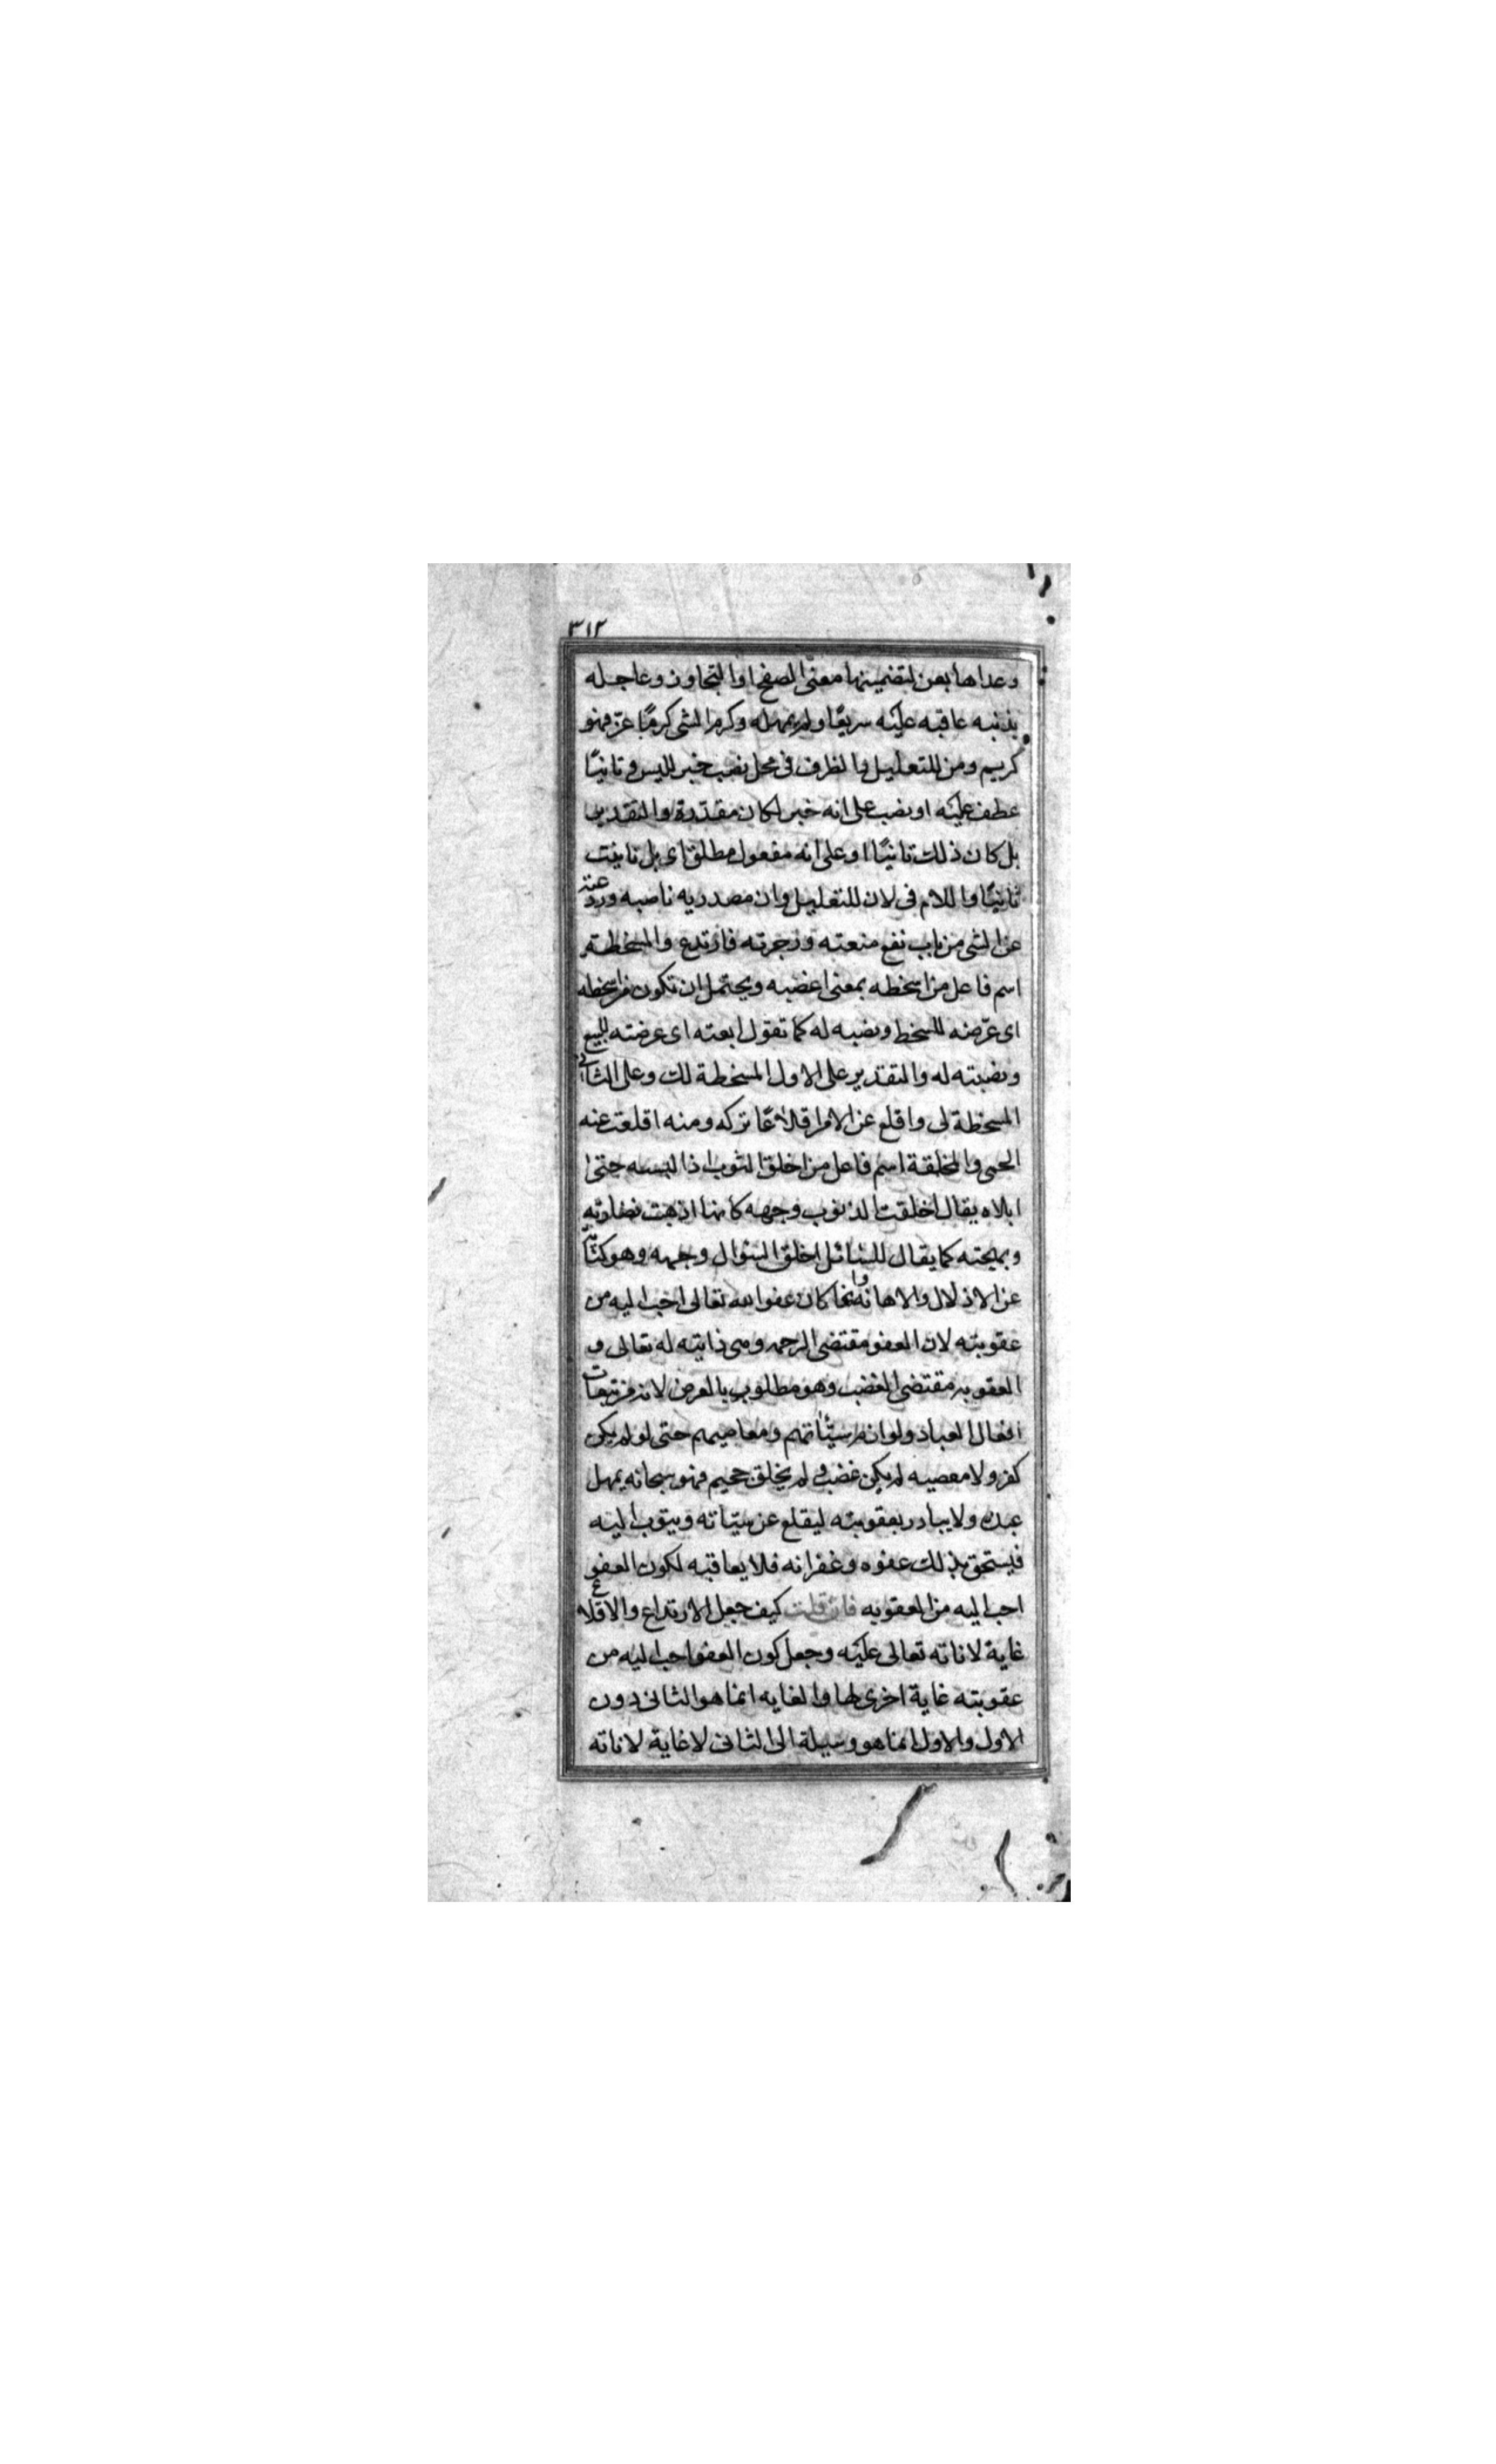 ٣١٢
وعداها بعن لتضمينها معنى الصفح او التجاوز وعاجله
بذنبه عاقبه عليه سريعًا ولم يمهله وكرم الشى كرمًا عزّ فهو
كريم ومن للتعليل والظرف فى محل نصب خبر لليس وتانيًا
عطف عليه او نصب على انه خبر لكان مقدّرة والتقدير
بل كان ذلك تانيًا او على انه مفعول مطلق اى بل تانيت
تانيًا واللام فى لان للتعليل وان مصدريه ناصبه وردعته
عن الشى من باب نفع منعته وزجرته فارتدع والمسخطة
اسم فاعل من اسخطه بمعنى اغضبه ويحتمل ان تكون من اسخطه
اى عرّضه للسخط ونصبه له كما تقول ابعته اى عرضته للبيع
ونصبته له والتقدير على الاول المسخطة لك وعلى الثانى
المسخطة لى واقلع عن الامر اقلاعًا تركه ومنه اقلعت عنه
الحمى والمخلقة اسم فاعل من اخلق الثوب اذا لبسه حتى
ابلاه يقال اخلقت الذنوب وجهه كانها اذهبت نضارته
وبهجته كما يقال للسائل اخلق السؤال وجهه وهو كناية
عن الاذلال والاهانه وانما كان عفو الله تعالى احب اليه من
عقوبته لان العفو مقتضى الرحمه وهى ذاتيته له تعالى و
العقوبه مقتضى الغضب وهو مطلوب بالعرض لانه من تبعات
افعال العباد ولوازم سيّئاتهم ومعاصيهم حتى لو لم يكن
كفر ولا معصيه لم يكن غضب و لم يخلق جحيم فهو سبحانه يمهل
عبده ولا يبادر بعقوبته ليقلع عن سيّاته ويتوب اليه
فيستحق بذلك عفوه وغفرانه فلا يعاقبه لكون العفو
احب اليه من العقوبه فان قلت كيف جعل الارتداع والاقلاع
غاية لاناته تعالى عليه وجعل كون العفو احب اليه من
عقوبته غاية اخرى لها والغايه انما هو الثانى دون
الاول والاول انما هو وسيلة الى الثانى لا غاية لاناته